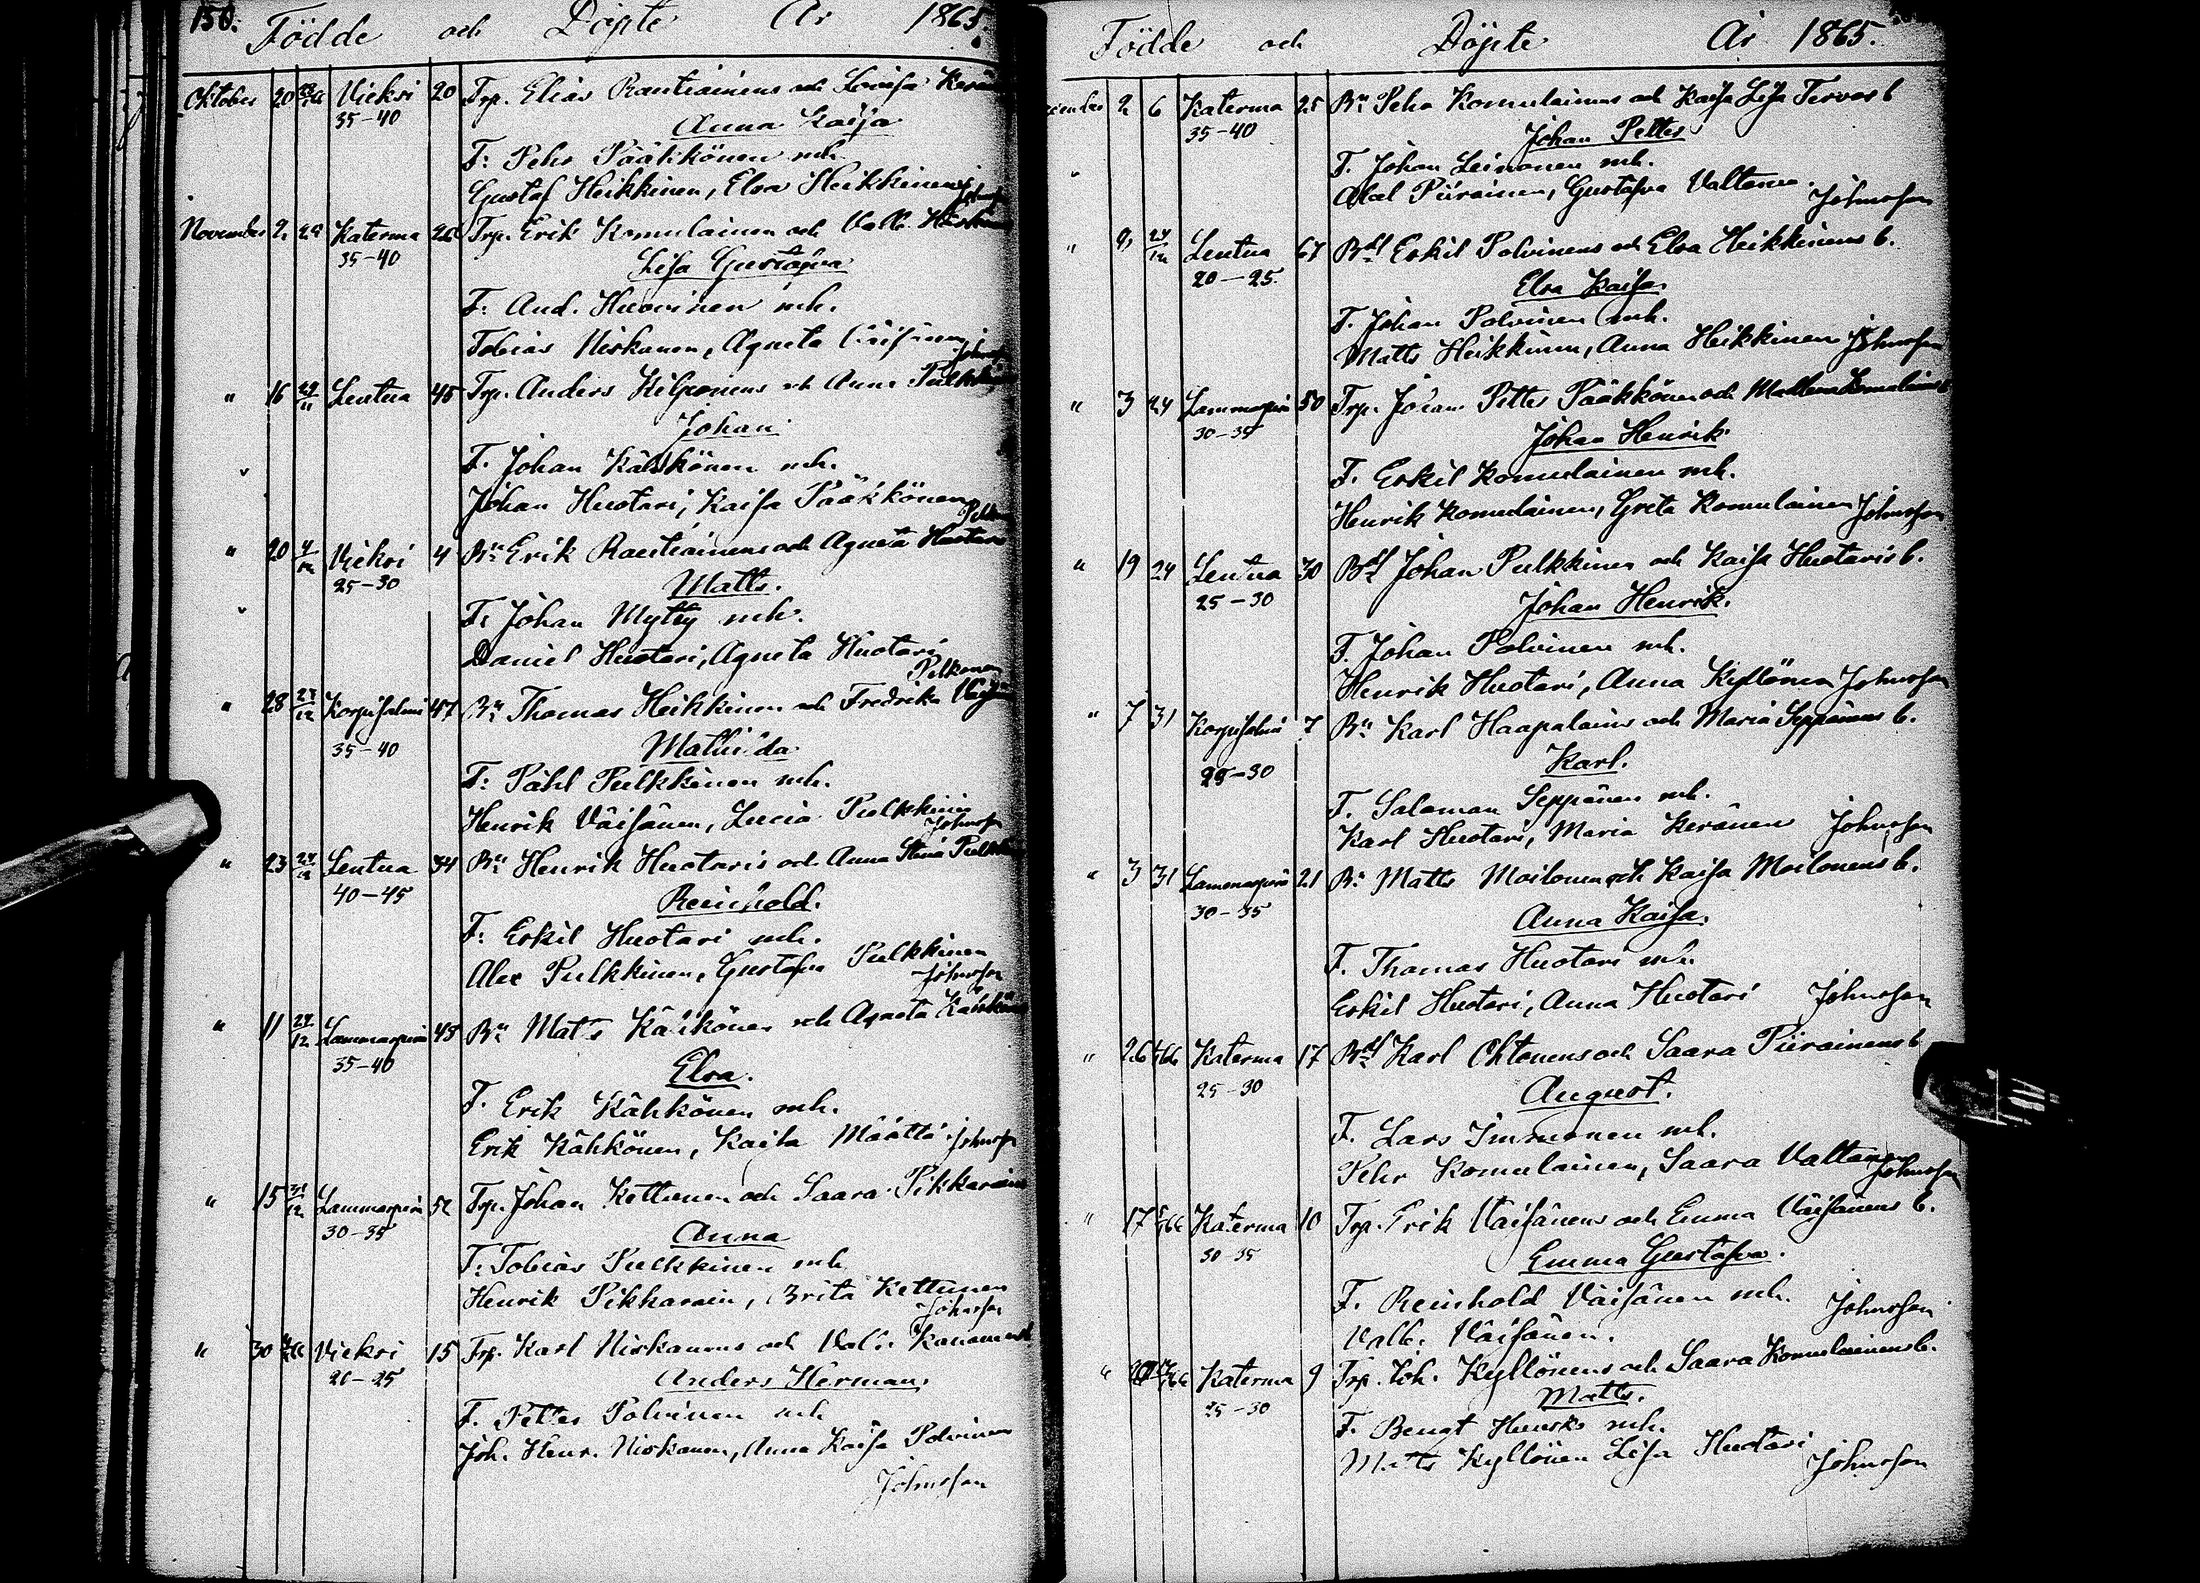 150.
Födde och Döpte År 1865.
Oktober 20 Vieksi 20 Trp. Elias Rautiainens och Lovisa
35-40
Anna Kaisa
F: Pehr Pääkkönen mh.
Gustaf Heikkinen, Elsa Heikkinen
November 2. 29 Katerma 26 Trp. Erik Komulainen och Valb.
35-40
Lisa Gustafva
F: And. Huovinen mh.
Tobias Niskanen, Agneta Väisänen
" 16 Lentua 45 Trp. Anders Kilponens och Anna
Johan
F. Johan Kähkönen mh.
Johan Huotari, Kaisa Pääkkönen
" 20 Vieksi 4 Bn Erik Rautiainens och Agneta Huotari
25-30
Matts.
F: Johan Mytty mh.
Daniel Huotari, Agneta Huotari
Pelkonen
" 28 27/12 Korpisalmi 47 Bn Thomas Heikkinen och Fredrika
35-40
Mathilda
F: Påhl Pulkkinen mh.
Henrik Väisänen, Lucia Pulkkinen
Johnsson
" 23 Lentua 34 Bn Henrik Huotaris och Anna Stina
40-45
Reinhold.
F: Eskil Huotari mh.
Alex Pulkkinen, Gustafva Pulkkinen
Johnsson
" 11 24/12 Lammasperä 43 Bn Matts Kähkönen och Agneta
35-40
Elsa.
F. Erik Kähkönen mh.
Erik Kähkönen, Kaisa Määttä Johnsson
" 15 31/12 Lammasperä 52 Trp. Johan Kettunen och Saara Pikkarainen
30-35
Anna
F: Tobias Pulkkinen mh.
Henrik Pikkarain, Brita Kettunen
Johnsson
" 30 Vieksi 15 Trp. Karl Niskanens och Valb.
20-25
Anders Herman.
F. Petter Polvinen mh.
Joh. Henr. Niskanen, Anna Kaisa Polvinen
Johnsson
Födde och Döpte År 1865.
2 6 Katerma 25 Bn Pehr Komulainens och Kaisa Lisa Tervos b
35-40
Johan Petter
F. Johan Leinonen mh.
Abel Piirainen, Gustafva Valtanen.
Johnsson
" 9 24/12 Lentua 67 Eskil Polvinens och Elsa Heikkinens b.
20-25.
Elsa Kaisa.
F. Johan Polvinen mh.
Matts Heikkinen, Anna Heikkinen Johnsson
" 3 24 Lammasperä 50 Trp. Johan Petter Pääkkönen och
30-35
Johan Henrik
F. Eskil Komulainen mh.
Henrik Komulainen, Greta Komulainen Johnsson
" 19 24 Lentua 30 Johan Pulkkinen och Kaisa Huotaris b.
25-30
Johan Henrik.
F. Johan Polvinen mh.
Henrik Huotari, Anna Kyllönen Johnsson
" 7 31 Korpisalmi 7 Bn Karl Haapalains och Maria Seppänens b.
25-30
Karl.
F. Salomon Seppänen mh.
Karl Huotari, Maria Keränen Johnsson
" 3 31 Lammasperä 21 Bn Matts Moilonen och Kaisa Moilonens b.
30-35
Anna Kaisa.
F. Thomas Huotari mh.
Eskil Huotari, Anna Huotari Johnsson
" 26 Katerma 17 Karl Ohtonens och Saara Piirainens b
25-30
August.
F. Lars Immonen mh.
Pehr Komulainen, Saara Valtanen
Johnsson
" 17 Katerma 10 Trp. Erik Väisänens och Emma Väisänens b.
30-35
Emma Gustafva.
F. Reinhold Väisänen mh.
Johnsson
Valb. Väisänen.
" Katerma 9 Trp. Joh. Kyllönens och Saara Komulainens b.
25-30
Matts.
F. Bengt mh.
Matts Kyllönen Lisa Huotari
Johnsson